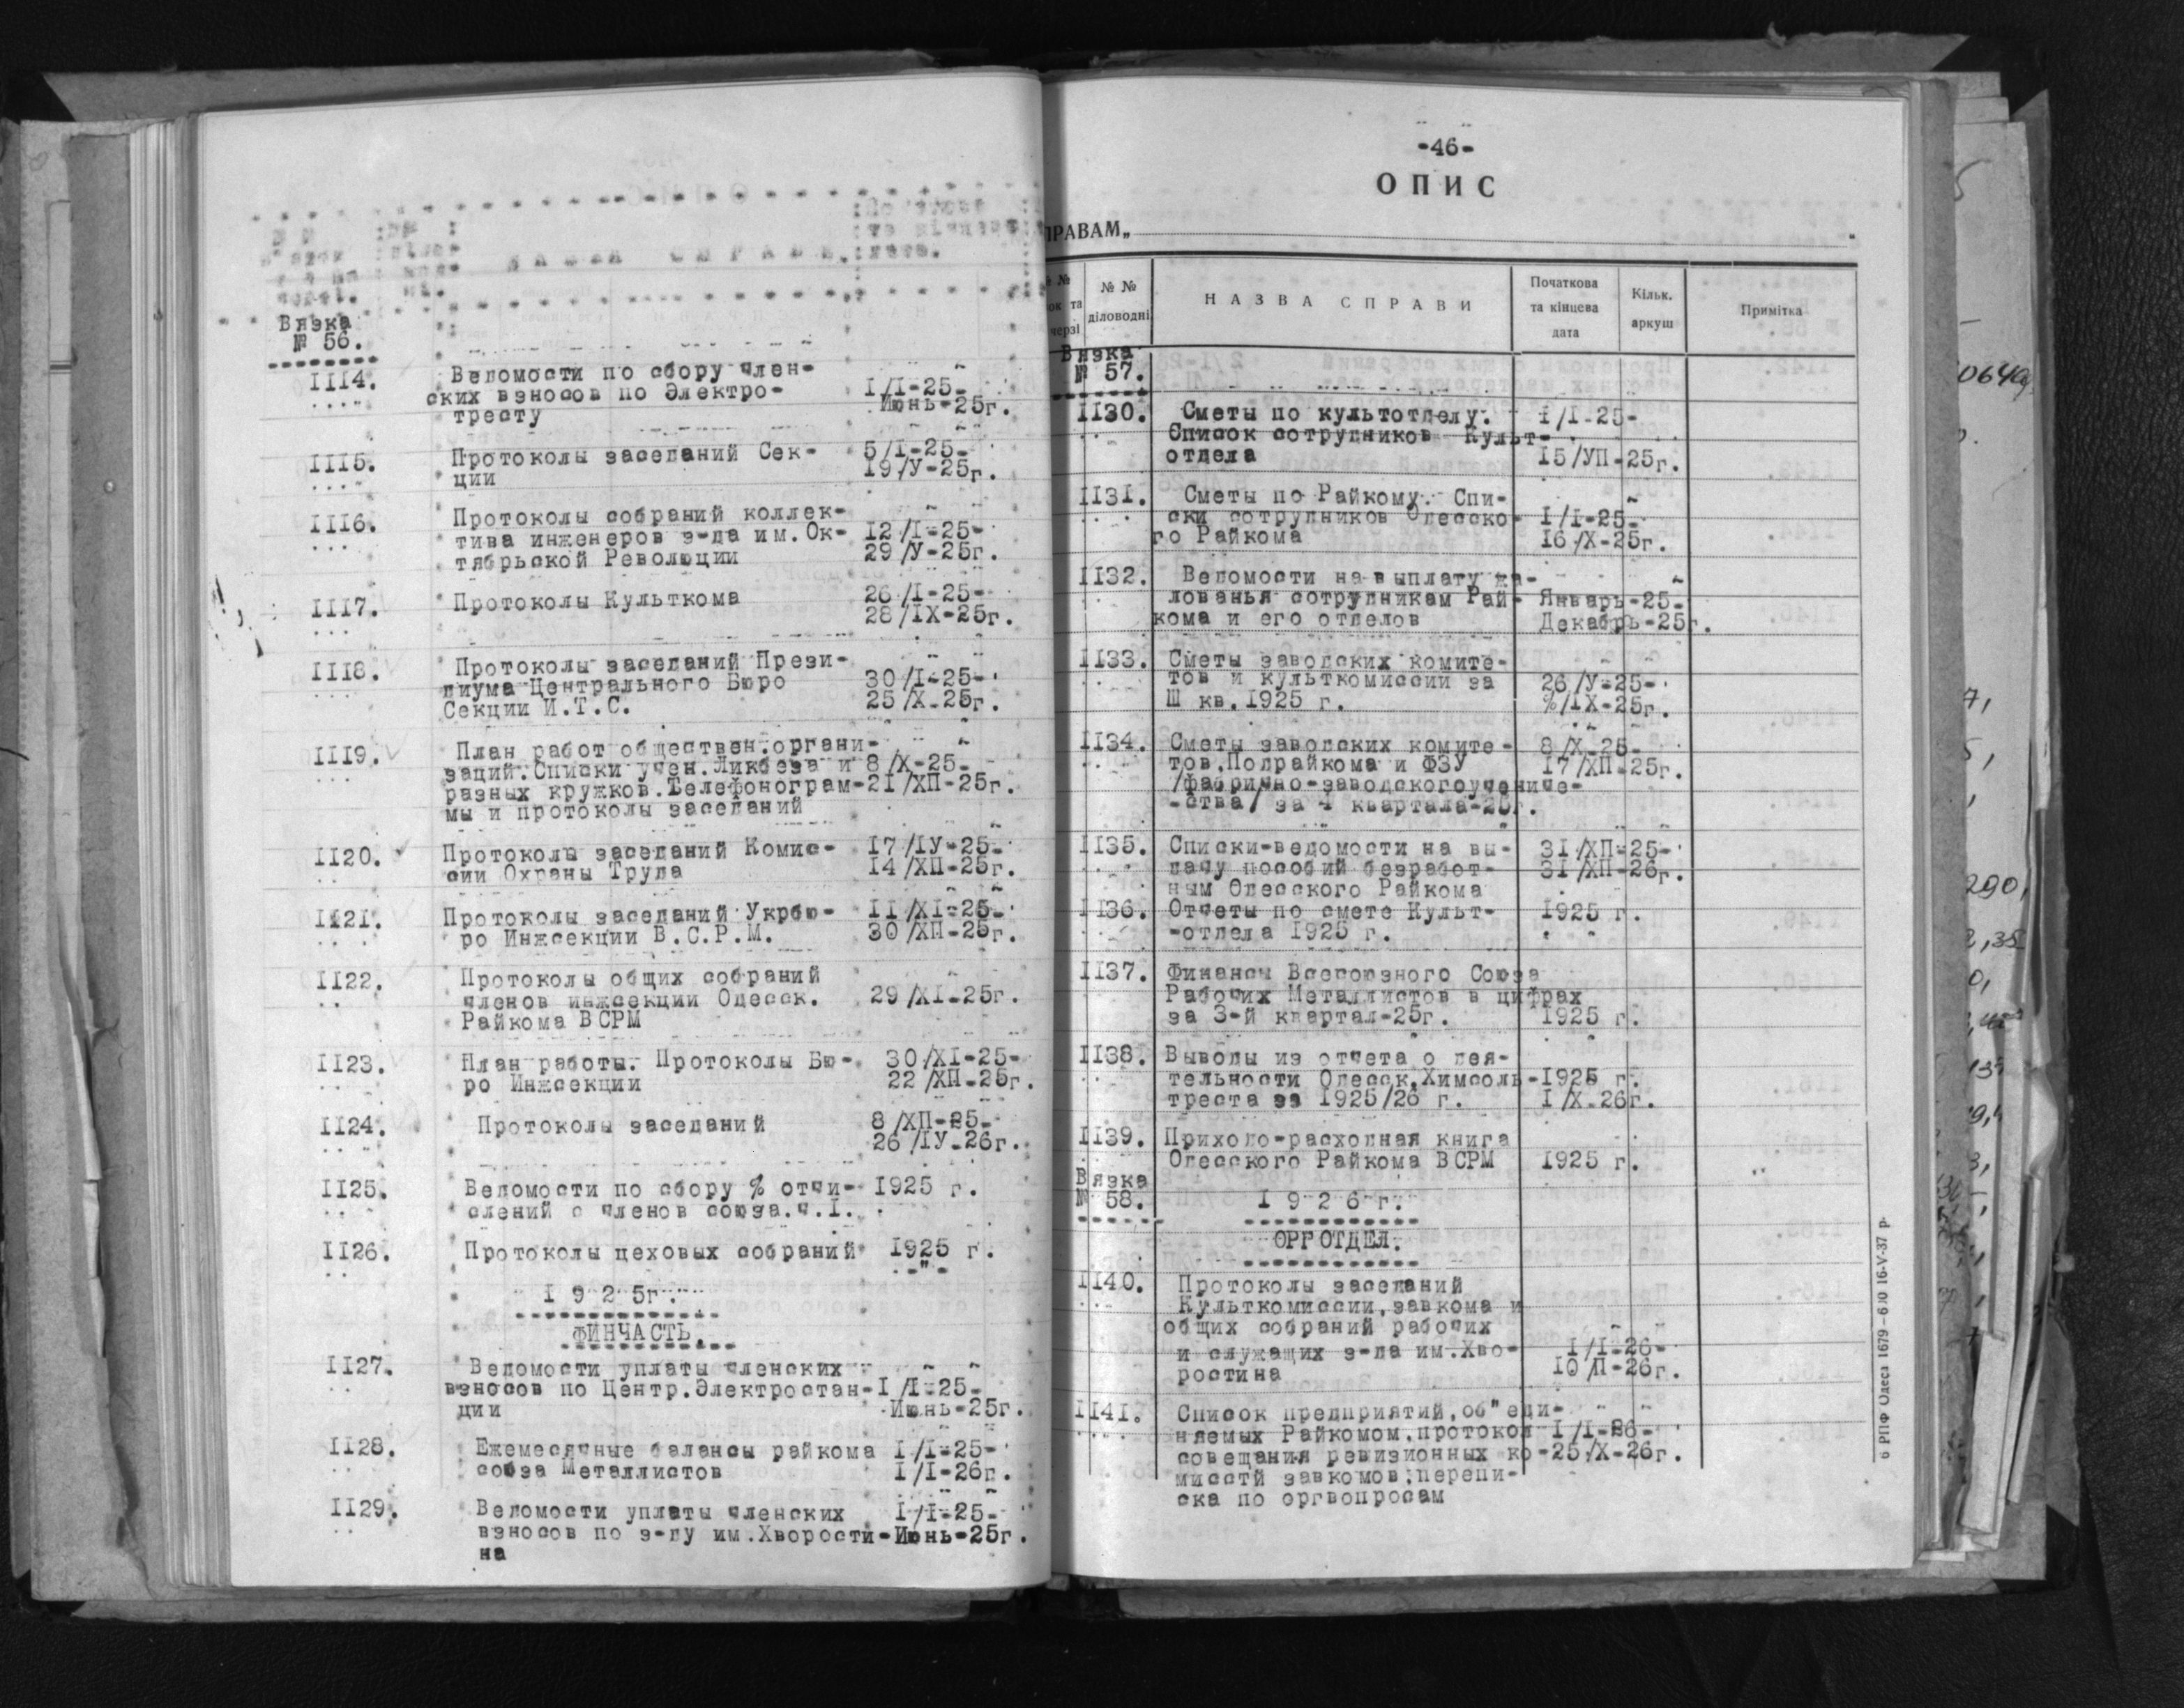 НАЗВА СПРАВИ.
та кінцева
дата.
Вязка
№ 56.
III4. Ведомости по сбору член-
ских взносов по Электро- I/I-25-
тресту Июнь-25г.
III5. Протоколы заседаний Сек- 5/I-25-
ции 19/У-25г.
III6. Протоколы собраний коллек-
тива инженеров з-да им.Ок- 12/I-25-
тябрьской Революции 29/У-25г.
III7. Протоколы Культкома 26/I-25-
28/IX-25г.
III8. Протоколы заседаний Прези-
диума Центрального Бюро 30/I-25-
Секции И.Т.С. 25/X-25г.
III9. План работ обществен.органи-
заций.Списки учен.Ликбеза и 8/X-25-
разных кружков.Телефонограм-21/ХП-25г.
мы и протоколы заседаний
II20. Протоколы заседаний Комис- 17/IУ-25-
сии Охраны Труда 14/ХП-25г.
II21. Протоколы заседаний Укрбю- II/XI-25-
ро Инжсекции В.С.Р.М. 30/ХП-25г.
II22. Протоколы общих собраний
членов инжсекции Одесск. 29/XI-25г.
Райкома ВСРМ
II23. План работы. Протоколы Бю- 30/XI-25-
ро Инжсекции 22/ХП-25г.
II24. Протоколы заседаний 8/ХП-25-
26/IУ-26г.
II25. Ведомости по сбору % отчи- 1925 г.
слений с членов союза.ч.I.
II26. Протоколы цеховых собраний 1925 г.
-"-
I 9 2 5г.
ФИНЧАСТЬ.
II27. Ведомости уплаты членских
взносов по Центр.Электростан-I/I-25-
ции Июнь-25г.
II28. Ежемесячные балансы райкома I/I-25-
союза Металлистов I/I-26г.
II29. Ведомости уплаты членских I/I-25-
взносов по з-ду им.Хворости-Июнь-25г.
на
-46-
ОПИС
ПРАВАМ„ "
№ № №  № діловодні НАЗВА СПРАВИ Початкова та кінцева дата Кільк. аркуш Примітка
Вязка
№ 57.
II30. Сметы по культотделу. I/I-25-
Список сотрудников Культ-
отдела 15/УП-25г.
II31. Сметы по Райкому. Спи-
ски сотрудников Одесско- I/I-25-
го Райкома 16/X-25г.
II32. Ведомости на выплату жа-
лованья сотрудникам Рай- Январь-25-
кома и его отделов Декабрь-25г.
II33. Сметы заводских комите-
тов и культкомиссии за 26/У-25-
Ш кв.1925 г. %/IX-25г.
II34. Сметы заводских комите- 8/X-25-
тов,Подрайкома и ФЗУ 17/ХП-25г.
/фабрично-заводскогоучениче-
-ства/ за 4 квартала-25г.
II35. Списки-ведомости на вы- 31/ХП-25-
дачу пособий безработ- 31/ХП-26г.
ным Одесского Райкома
II36. Отчеты по смете Культ- 1925 г.
-отдела 1925 г.
II37. Финансы Всесоюзного Союза
Рабочих Металлистов в цифрах
за 3-й квартал-25г. 1925 г.
II38. Выводы из отчета о дея-
тельности Одесск.Химсоль-1925 г.
треста за 1925/26 г. I/X-26г.
II39. Приходо-расходная книга
Одесского Райкома ВСРМ 1925 г.
Вязка
№ 58. I 9 2 6 г.
ОРГОТДЕЛ.
II40. Протоколы заседаний
Культкомиссии,завкома и
общих собраний рабочих
и служащих з-да им.Хво- I/I-26-
ростина 10/П-26г.
II41. Список предприятий,об"еди-
няемых Райкомом,протокол I/I-26-
совещания ревизионных ко-25/X-26г.
мисстй завкомов;перепи-
ска по оргвопросам
6 РПФ Одеса 1679-600 16-V-37 р·